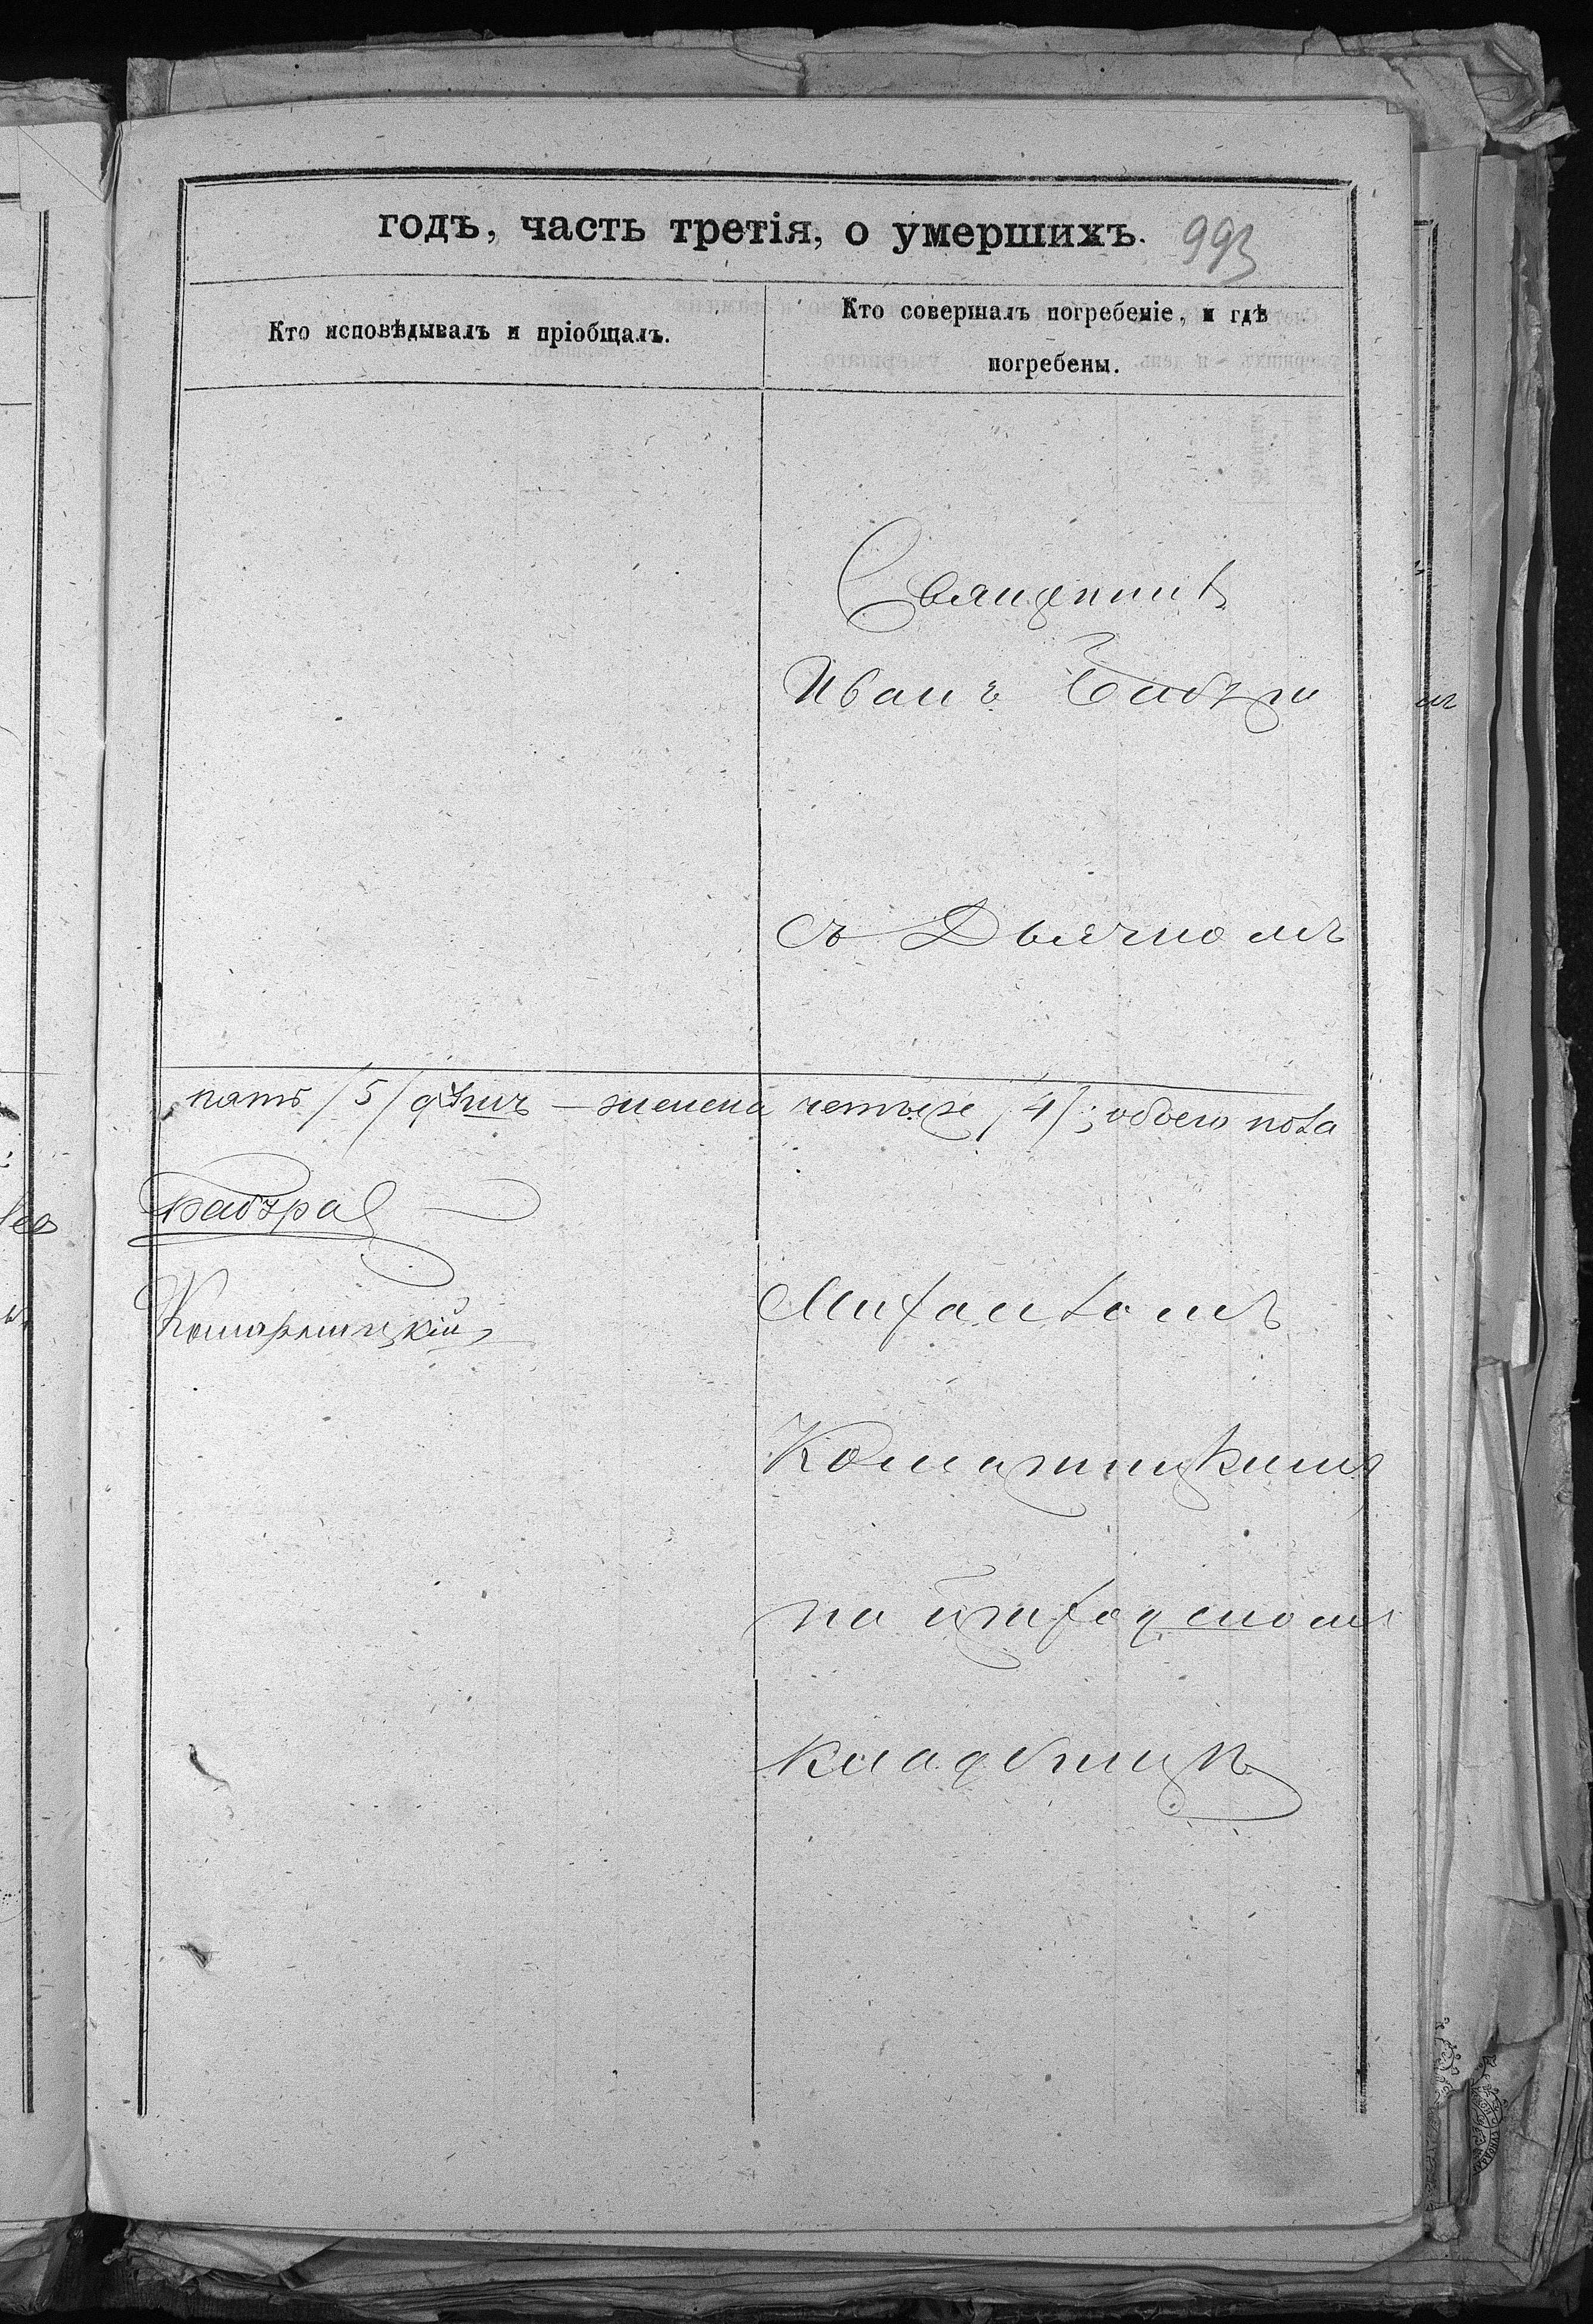 годъ, часть третія, о умершихъ. 993
Кто исповѣдывалъ и пріобщалъ.
Кто совершалъ погребеніе, и гдѣ
погребены.
Священникъ
Иванъ
съ Дьячкомъ
пять /5/ женска четыре /4/; обоего пола
Комарницкій
Михаиломъ
Комарницкимъ
на приходскомъ
кладбищѣ